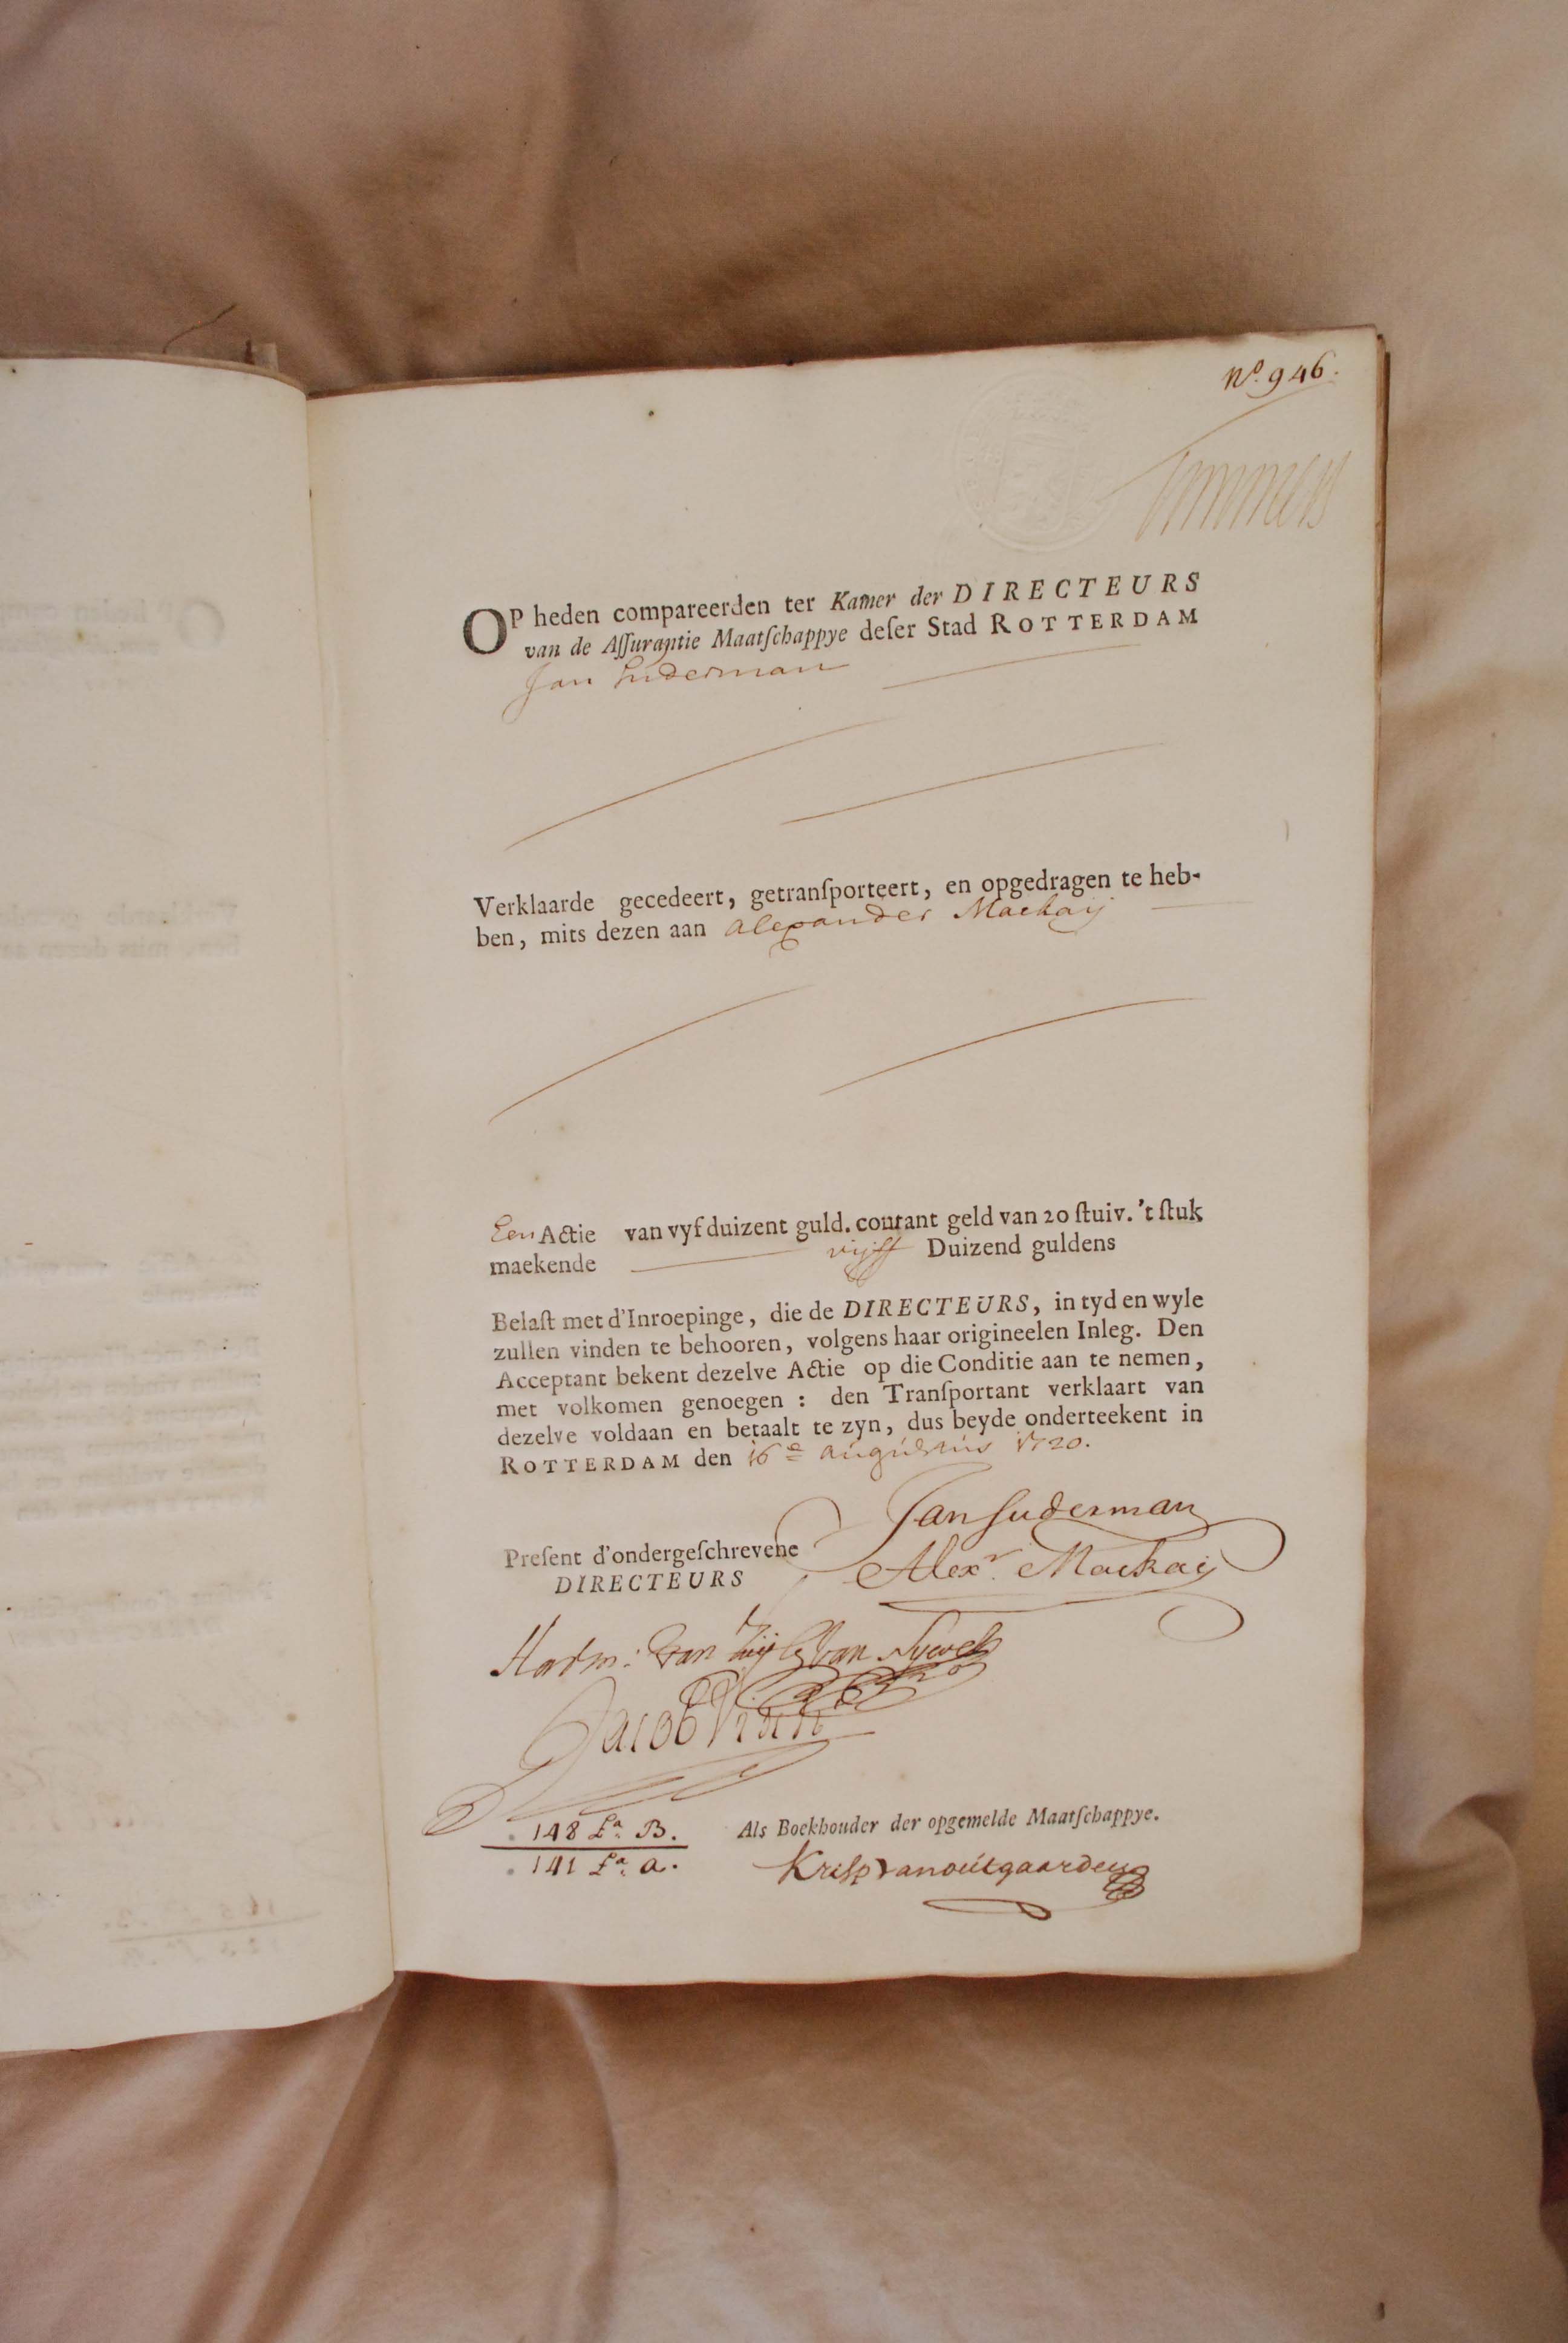 No. 946.
Timmers
OP heden compareerden ter Kamer der DIRECTEURS
van de Assurantie Maatschappye deser Stad ROTTERDAM
Jan Suderman
Verklaarde gecedeert, getransporteert, en opgedragen te heb-
ben, mits dezen aan Alexander Mackaij
Een Actie van vyf duizent guld. courant geld van 20 stuiv. 't stuk
maekende vijff Duizend guldens
Belast met d'Inroepinge, die de DIRECTEURS, in tyd en wyle
zullen vinden te behooren, volgens haar origineelen Inleg. Den
Acceptant bekent dezelve Actie op die Conditie aan te nemen,
met volkomen genoegen : den Transportant verklaart van
dezelve voldaan en betaalt te zyn, dus beyde onderteekent in
ROTTERDAM den 16e augustus 1720.
Jan Suderman
Present d'ondergeschrevene
Alexr. Mackaij
DIRECTEURS
Harm: van Zijl van
Jacob
148 La. B.
Als Boekhouder der opgemelde Maatschappye.
141 La. a.
Krisp van outgaarden